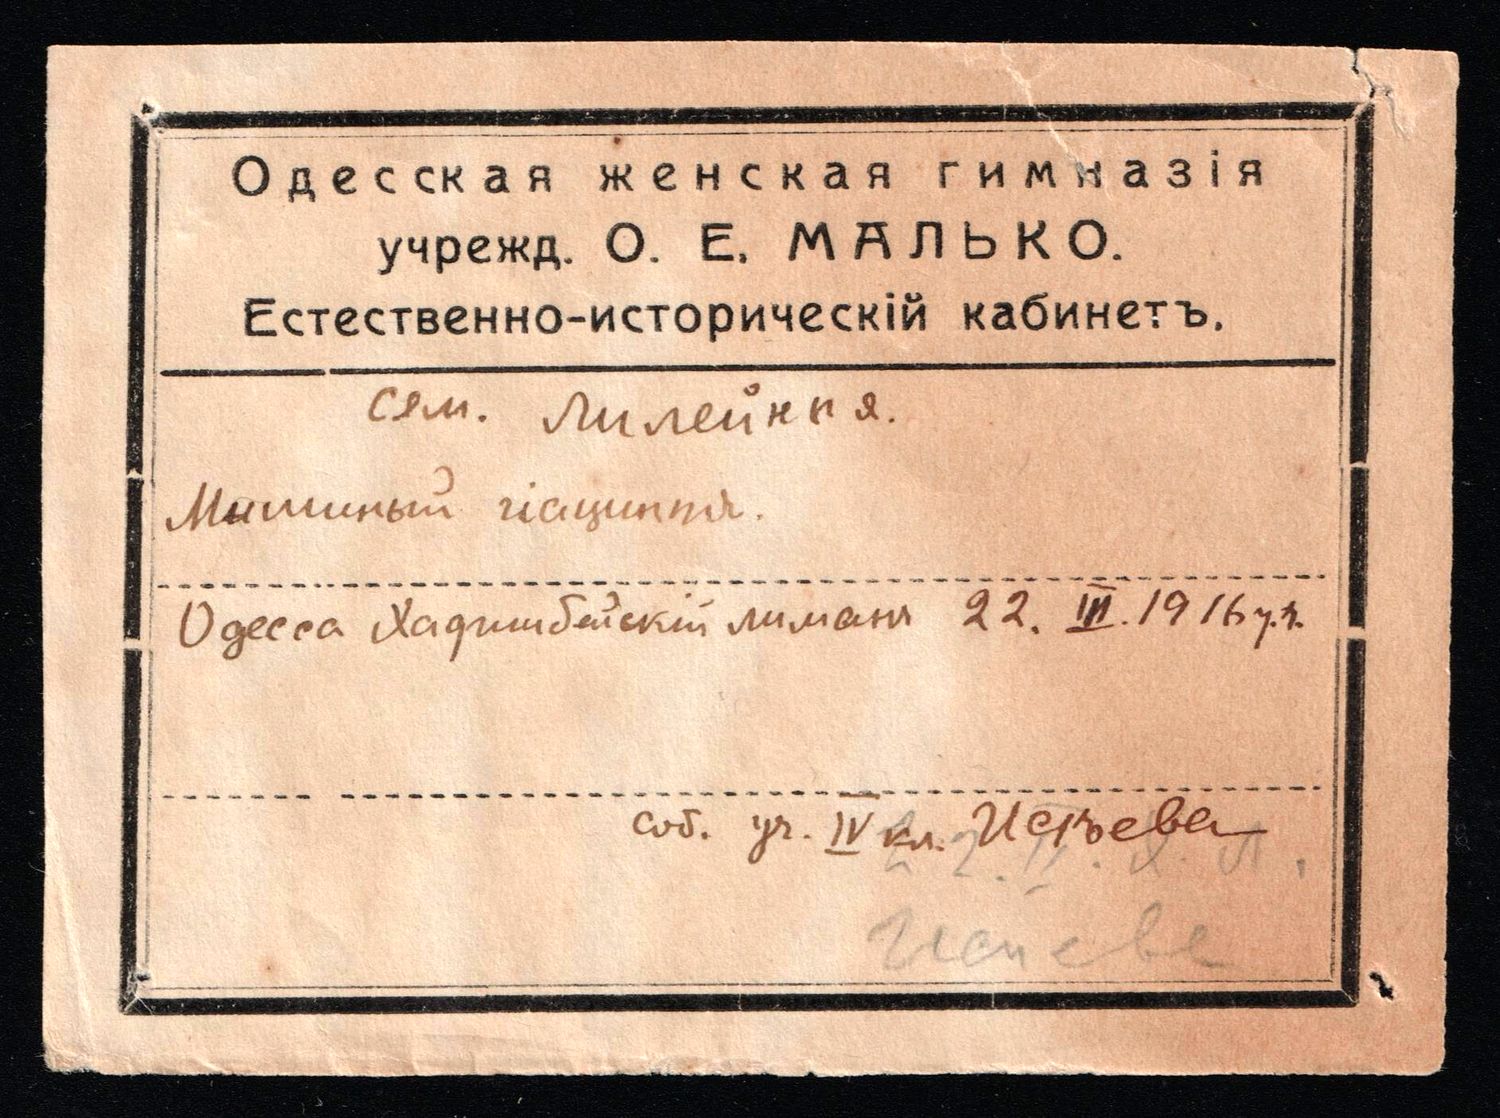 Одесская женская гимназія
учрежд. О. Е. МАЛЬКО.
Естественно-историческій кабинетъ.
сем. Лилейныя.
Мышиный гіацинтъ.
Одесса Хаджибейскій лиманъ 22. III. 1916 г.
соб. уч. IV кл.
22. II.